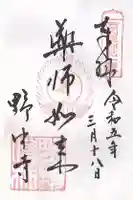 奉拝
令和五年
三月十八日
薬師如来
野中寺